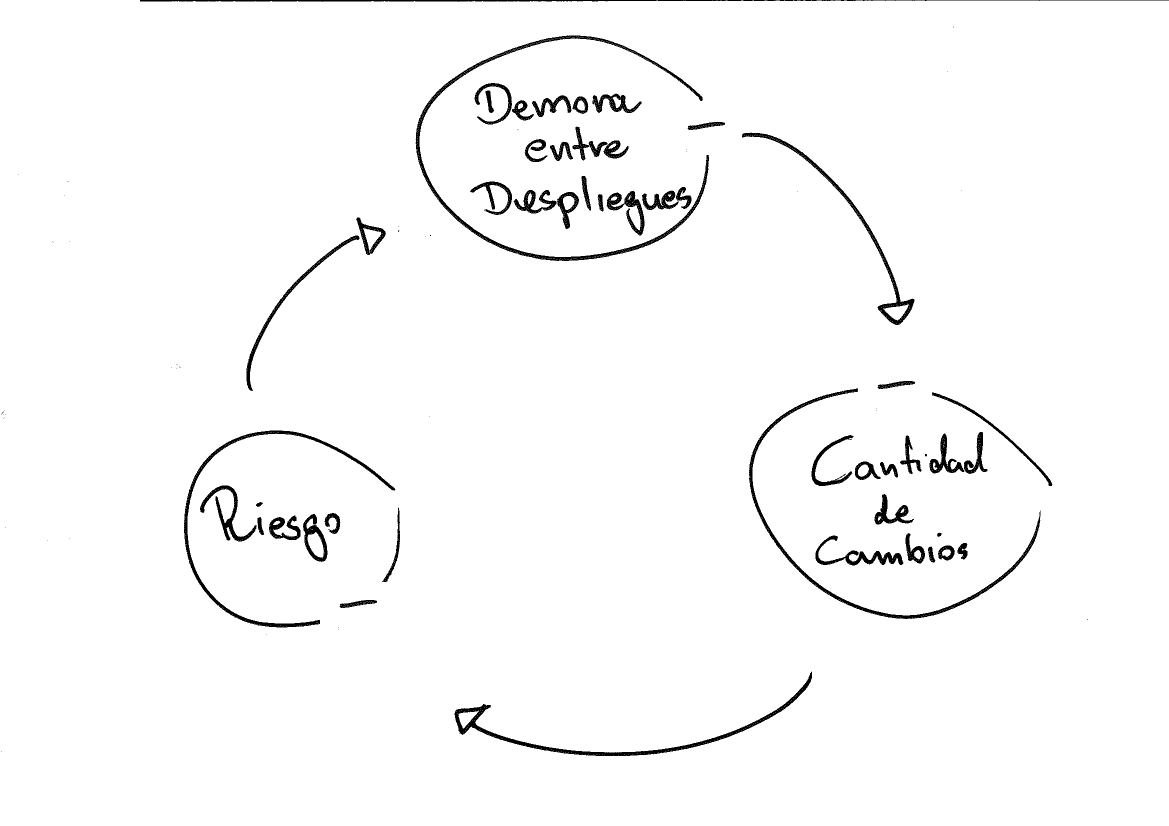 Demora
entre
Despliegues
-
-
Cantidad
de
Cambios
Riesgo
-